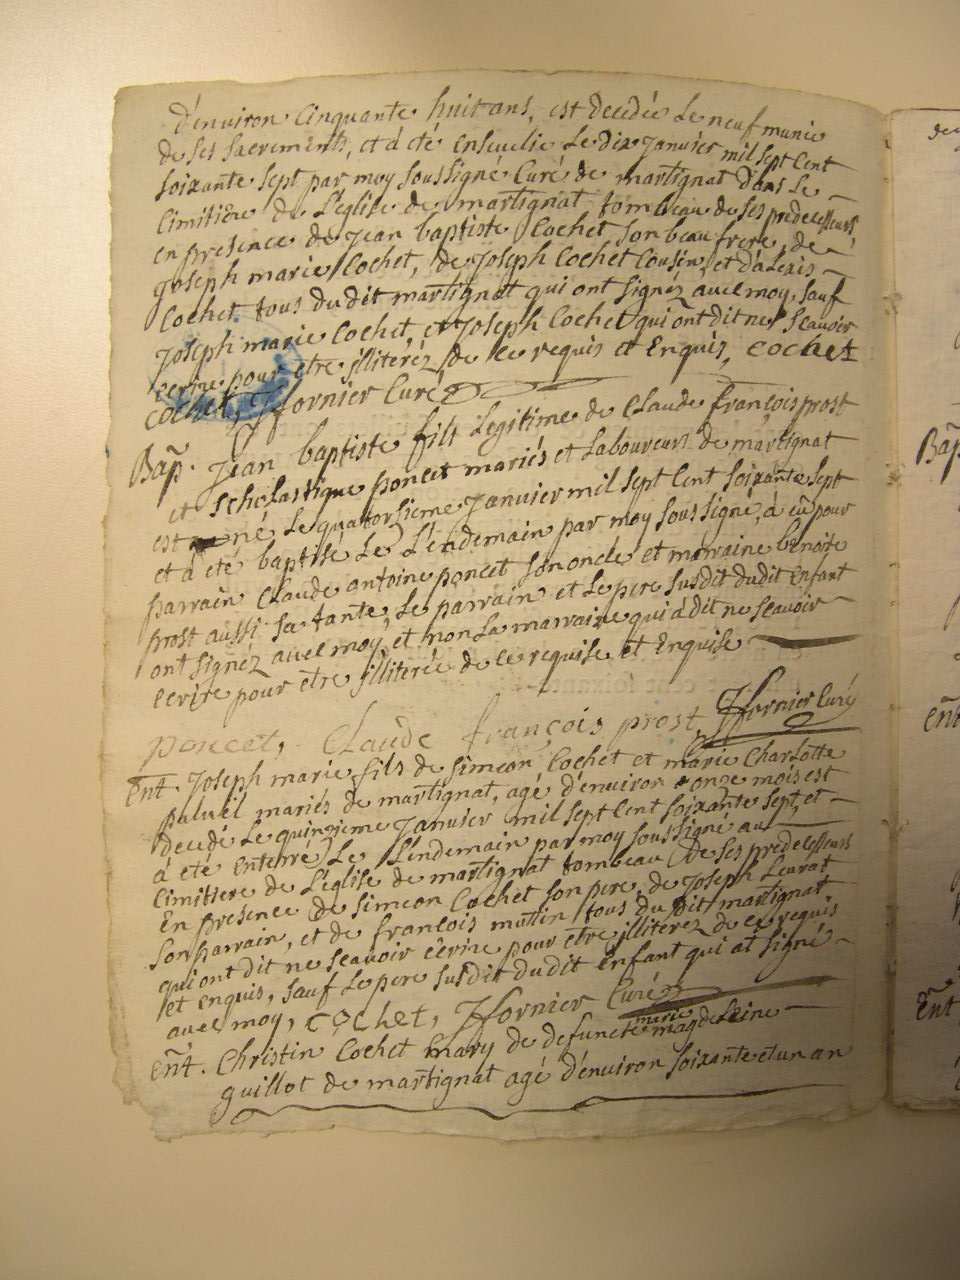 d'environ cinquante huit ans, est decedée le neuf munie
de ses sacrements, et à été ensevelie le dix janvier mil sept cent
soixante sept par moy soussigné curé de martignat dans le
cimitière de l'église de martignat tombeau de ses predecesseurs
en presence de jean baptiste cochet son beau frere, de
joseph marie cochet, de joseph cochet cousin, et d'alexis
cochet tous dudit martignat qui ont signéz avec moy, sauf
joseph marie cochet, et joseph cochet qui ont dit ne sçavoir
ecrire pour etre illiteréz de ce requis et enquis, cochet
cochet, ffornier curé
Bap. jean baptiste fils legitime de claude françois prost
et scholastique poncet mariés et laboureurs de martignat
est né le quatorsieme janvier mil sept cent soixante sept
et à eté baptisé le lendemain par moy soussigné, à eu pour
parrain claude antoine poncet son oncle et marraine benoite
prost aussi sa tante, le parrain et le pere susdit dudit enfant
ont signéz avec moy, et non la marraine qui a dit ne sçavoir
ecrire pour etre illiterée de ce requise et enquise
poncet, claude françois prost, ffornier curé
Ent. joseph marie fils de simeon cochet et marie charlotte
mariés de martignat, agé d'environ onze mois est
decedé le quinzieme janvier mil sept cent soixante sept, et
à eté enterré le lendemain par moy soussigné au
cimitiere de l'église de martignat tombeau de ses predecesseurs
en presence de simeon cochet son pere, de joseph
son parrain, et de françois tous du dit martignat
qui ont dit ne sçavoir ecrire pour etre illiteréz de ce requis
et enquis, sauf le pere susdit dudit enfant qui at signé
avec moy, cochet, ffornier curé
marie
Ent. christin cochet mary de defuncte magdeleine
guillot de martignat agé d'environ soixante et un an